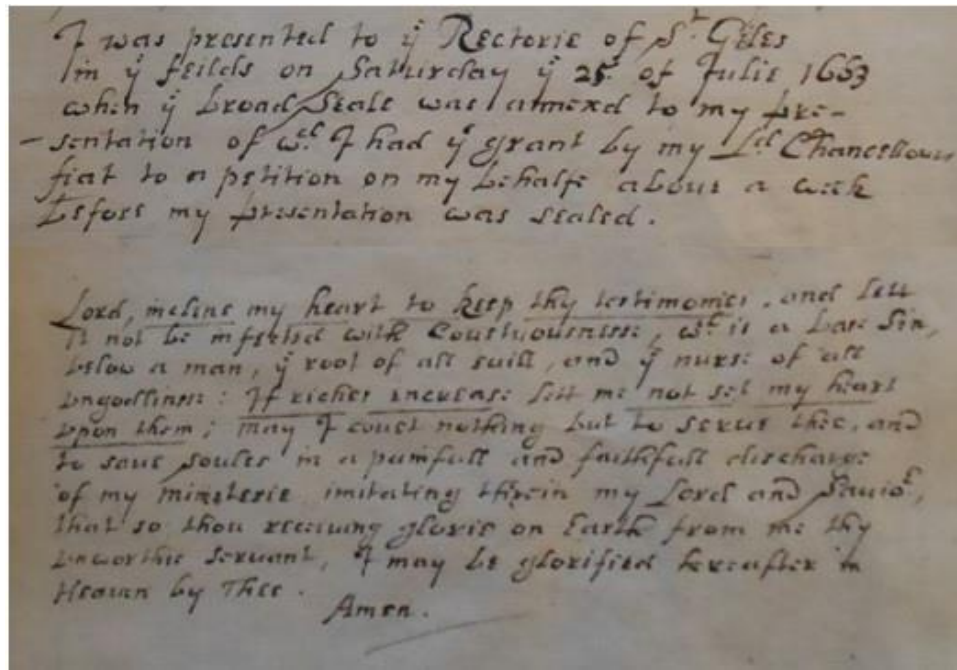 I was presented to yͤ Rectorie of Sᵗ Giles
in yͤ feilds on Saturday yͤ 25. of Julie 1663
when yͤ broad Seale was annexd to my pre-
-sentation of wᶜʰ I had yͤ grant by my Lᵈ Chancellours
fiat to a petition on my behalfe aboue a week
before my presentation was sealed.
Lord, incline my heart to keep thy testimonies, and lett
it not be infected with Couetuousnesse, wᶜʰ is a base sin,
below a man, yͤ root of all euill, and yͤ nurse of all
ungodlinesse: If riches encrease lett me not set my heart
upon them; may I couet nothing but to serue thee, and
to saue soules in a painfull and faithfull discharge
of my ministerie imitating therein my Lord and Sauioʳ,
that so thou receiuing glorie on Earth from me thy
unworthie seruant, I may be glorified hereafter in
Heauen by Thee.
Amen.